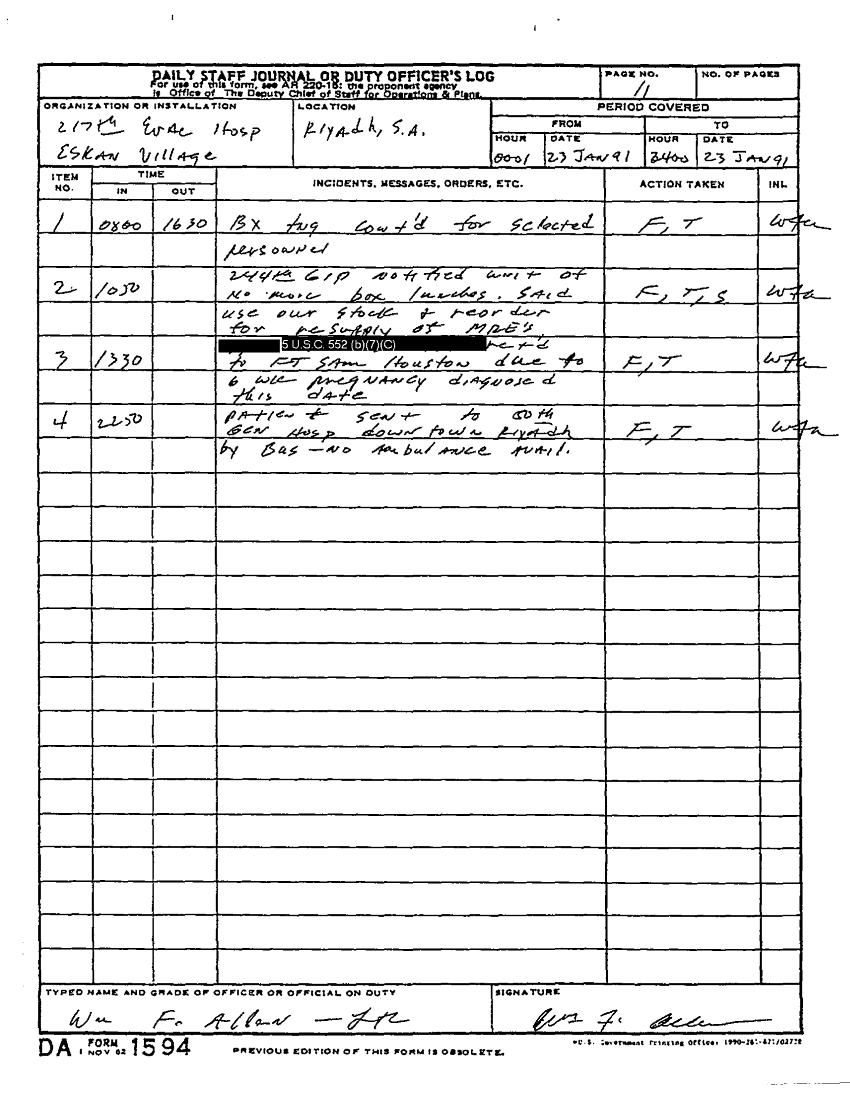 DAILY STAFF JOURNAL OR DUTY OFFICER'S LOG
For use of this form, see AR 220-15; the proponent agency
is Office of The Deputy Chief of Staff for Operations & Plans.
PAGE NO.
11
NO. OF PAGES
ORGANIZATION OR INSTALLATION
217th Evac Hosp
ESKAN Village
LOCATION
Riyadh, S.A.
PERIOD COVERED
FROM
TO
HOUR DATE HOUR DATE
0001 23 JAN 91 2400 23 JAN 91
ITEM NO.
TIME
IN OUT
INCIDENTS, MESSAGES, ORDERS, ETC.
ACTION TAKEN
INL
1 0800 1630 BX tng cont'd for selected F, T wfa
personnel
244th GIP notified unit of
2 1050 No more box lunches. Said F, T, S wfa
use our stock & reorder
for resupply of MRE's
5 U.S.C. 552 (b)(7)(C) ret'd
3 1330 to FT SAM Houston due to F, T wfa
6 wk pregnancy diagnosed
this date
4 2250 patient sent to 50th
GEN Hosp downtown Riyadh F, T wfa
by Bus - No Ambulance avail.
TYPED NAME AND GRADE OF OFFICER OR OFFICIAL ON DUTY
Wm F. Allan -
SIGNATURE
Wm F.
DA FORM 1 NOV 62 1594
PREVIOUS EDITION OF THIS FORM IS OBSOLETE.
*U.S. Government Printing Office: 1990-261-871/02728